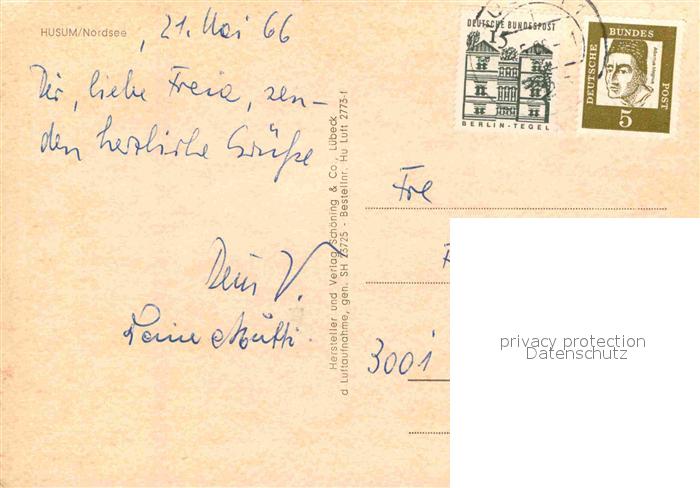 HUSUM/Nordsee
, 21. Mai 66
Dir, liebe Freia, sen-
den herzliche Grüße
Dein V.
Deine Mutti.
Hersteller und Verlag Schöning & Co., Lübeck
d Luftaufnahme, gen. SH 25725 - Bestellnr. Hu Luft 2773-f
DEUTSCHE BUNDESPOST
15
BERLIN-TEGEL
DEUTSCHE
BUNDES
POST
5
Fre
3001
privacy protection
Datenschutz